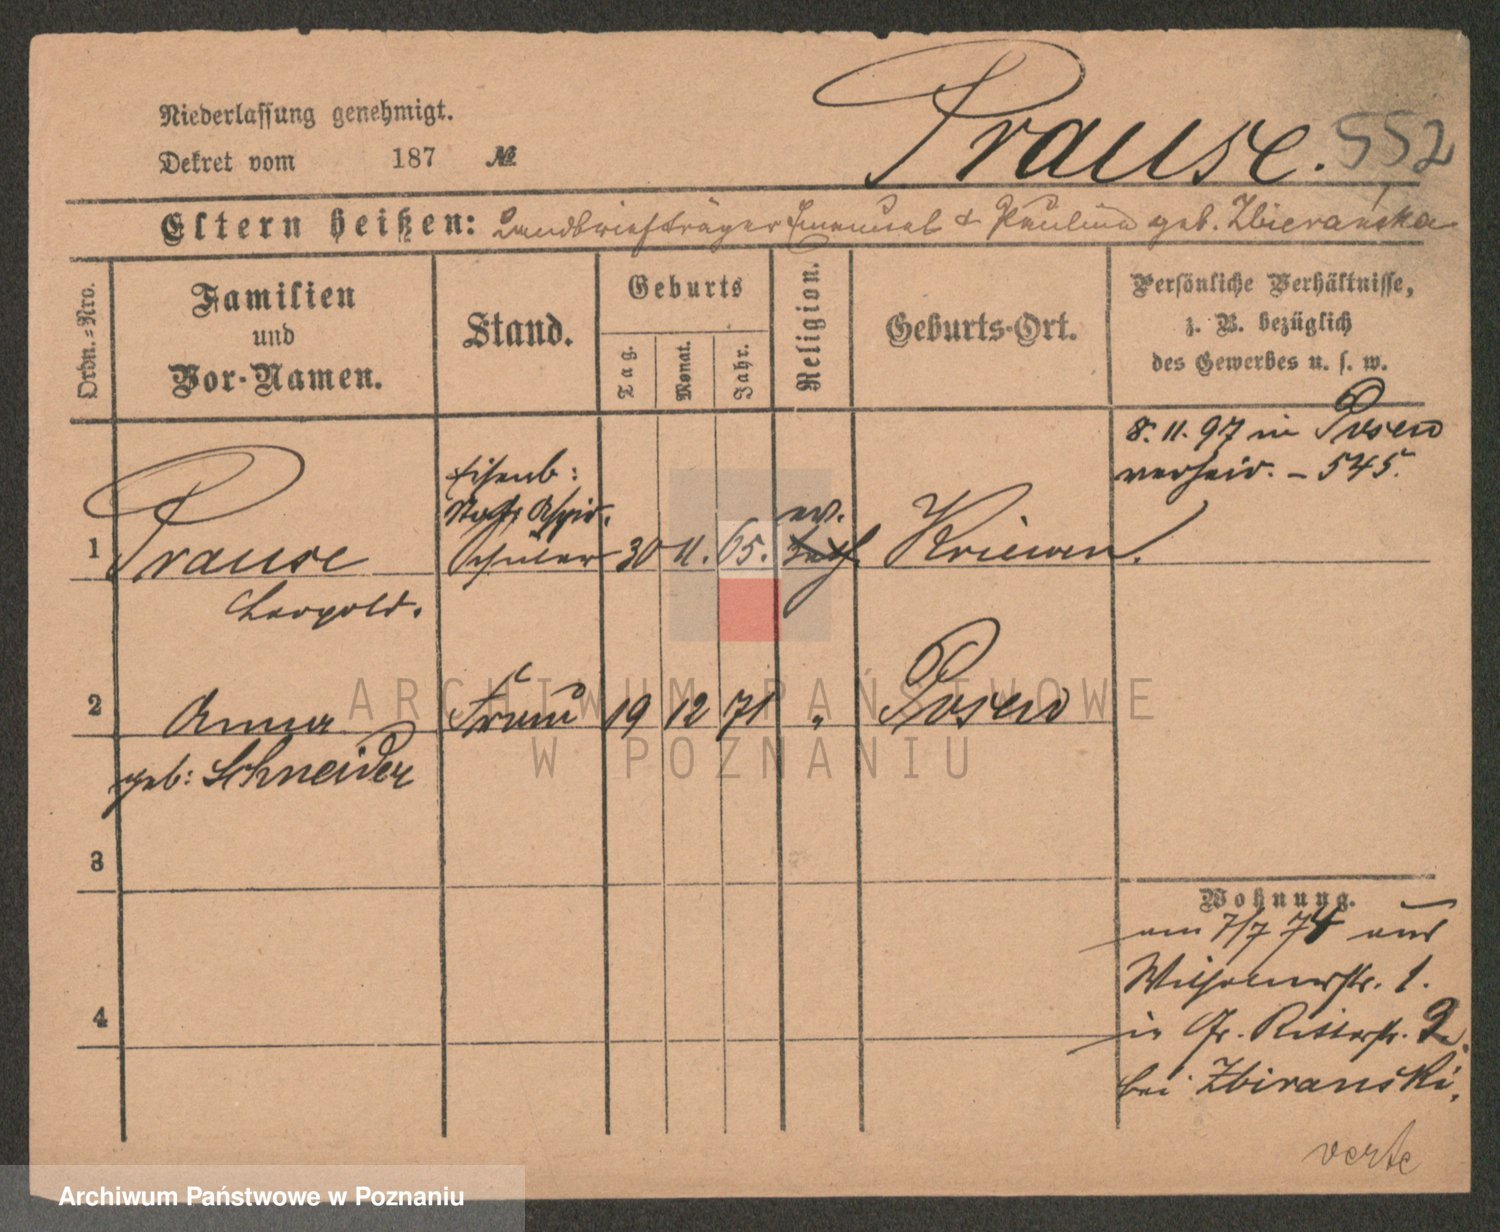 Niederlassung genehmigt.
Dekret vom 187 №
Prause. 552
Eltern heißen: Landbriefträger Emanuel & Paulina geb. Zbierańska
Ordn.-Nro.
Familien
und
Vor-Namen.
Stand.
Geburts
Tag.
Monat.
Jahr.
Religion.
Geburts-Ort.
Persönliche Verhältnisse,
z. B. bezüglich
des Gewerbes u. s. w.
8. 11. 97 in Posen
verheir. – 545.
Eisenb:
Aspir.
1 Prause Schüler 30 11. 65. ev. kath. Kriewen.
Leopold.
2 Anna Frau 19 12 71 " Posen
geb: Schneider
3
4
Wohnung.
am 7/7 74 aus
Wilhelmstr. 1.
in Gr. Ritterstr. 2.
bei Zbiranski.
verte
ARCHIWUM PAŃSTWOWE
W POZNANIU
Archiwum Państwowe w Poznaniu